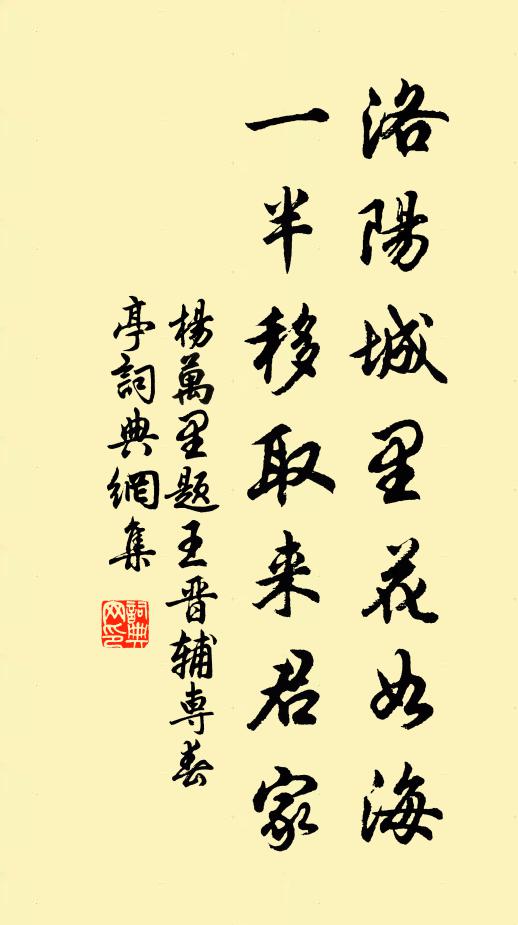 洛陽城里花如海
一半移取来君家
楊萬里题王晋辅専春
亭詞典網集
詞典网印